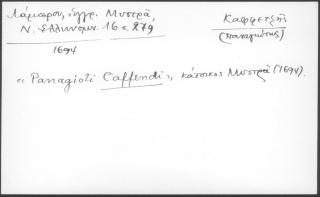 Λάμπρου, ἔγγρ. Μυστρᾶ,
Ν. Ἑλληνομν. 16 σ. 279
1694
Καφφετζῆ
(Παναγιώτης)
« Panagioti Caffendi », κάτοικος Μυστρᾶ (1694).